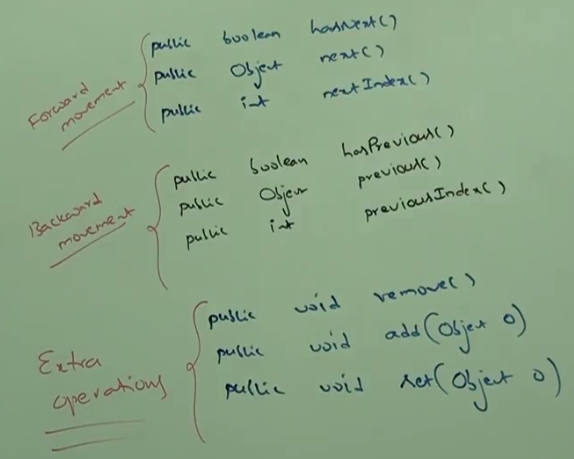 Forward movement
public boolean hasNext()
public Object next()
public int nextIndex()
Backward movement
public boolean hasPrevious()
public Object previous()
public int previousIndex()
Extra operations
public void remove()
public void add(Object o)
public void set(Object o)